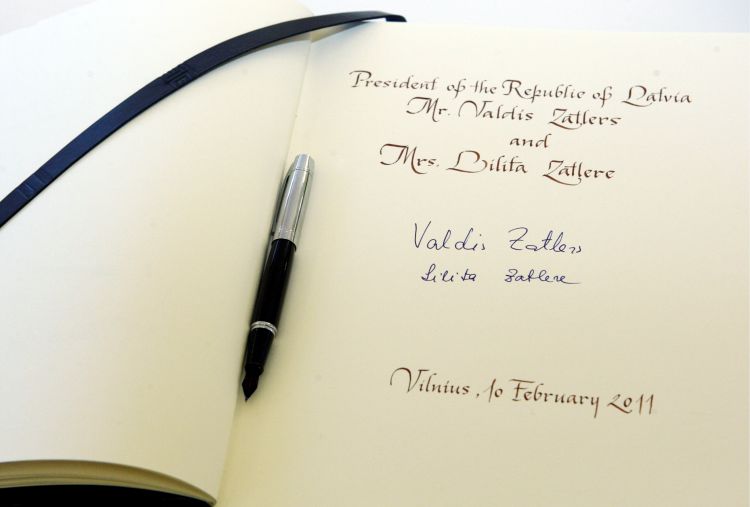 President of the Republic of Latvia
Mr. Valdis Zatlers
and
Mrs. Lilita Zatlere
Valdis Zatlers
Lilita Zatlere
Vilnius, 10 February 2011